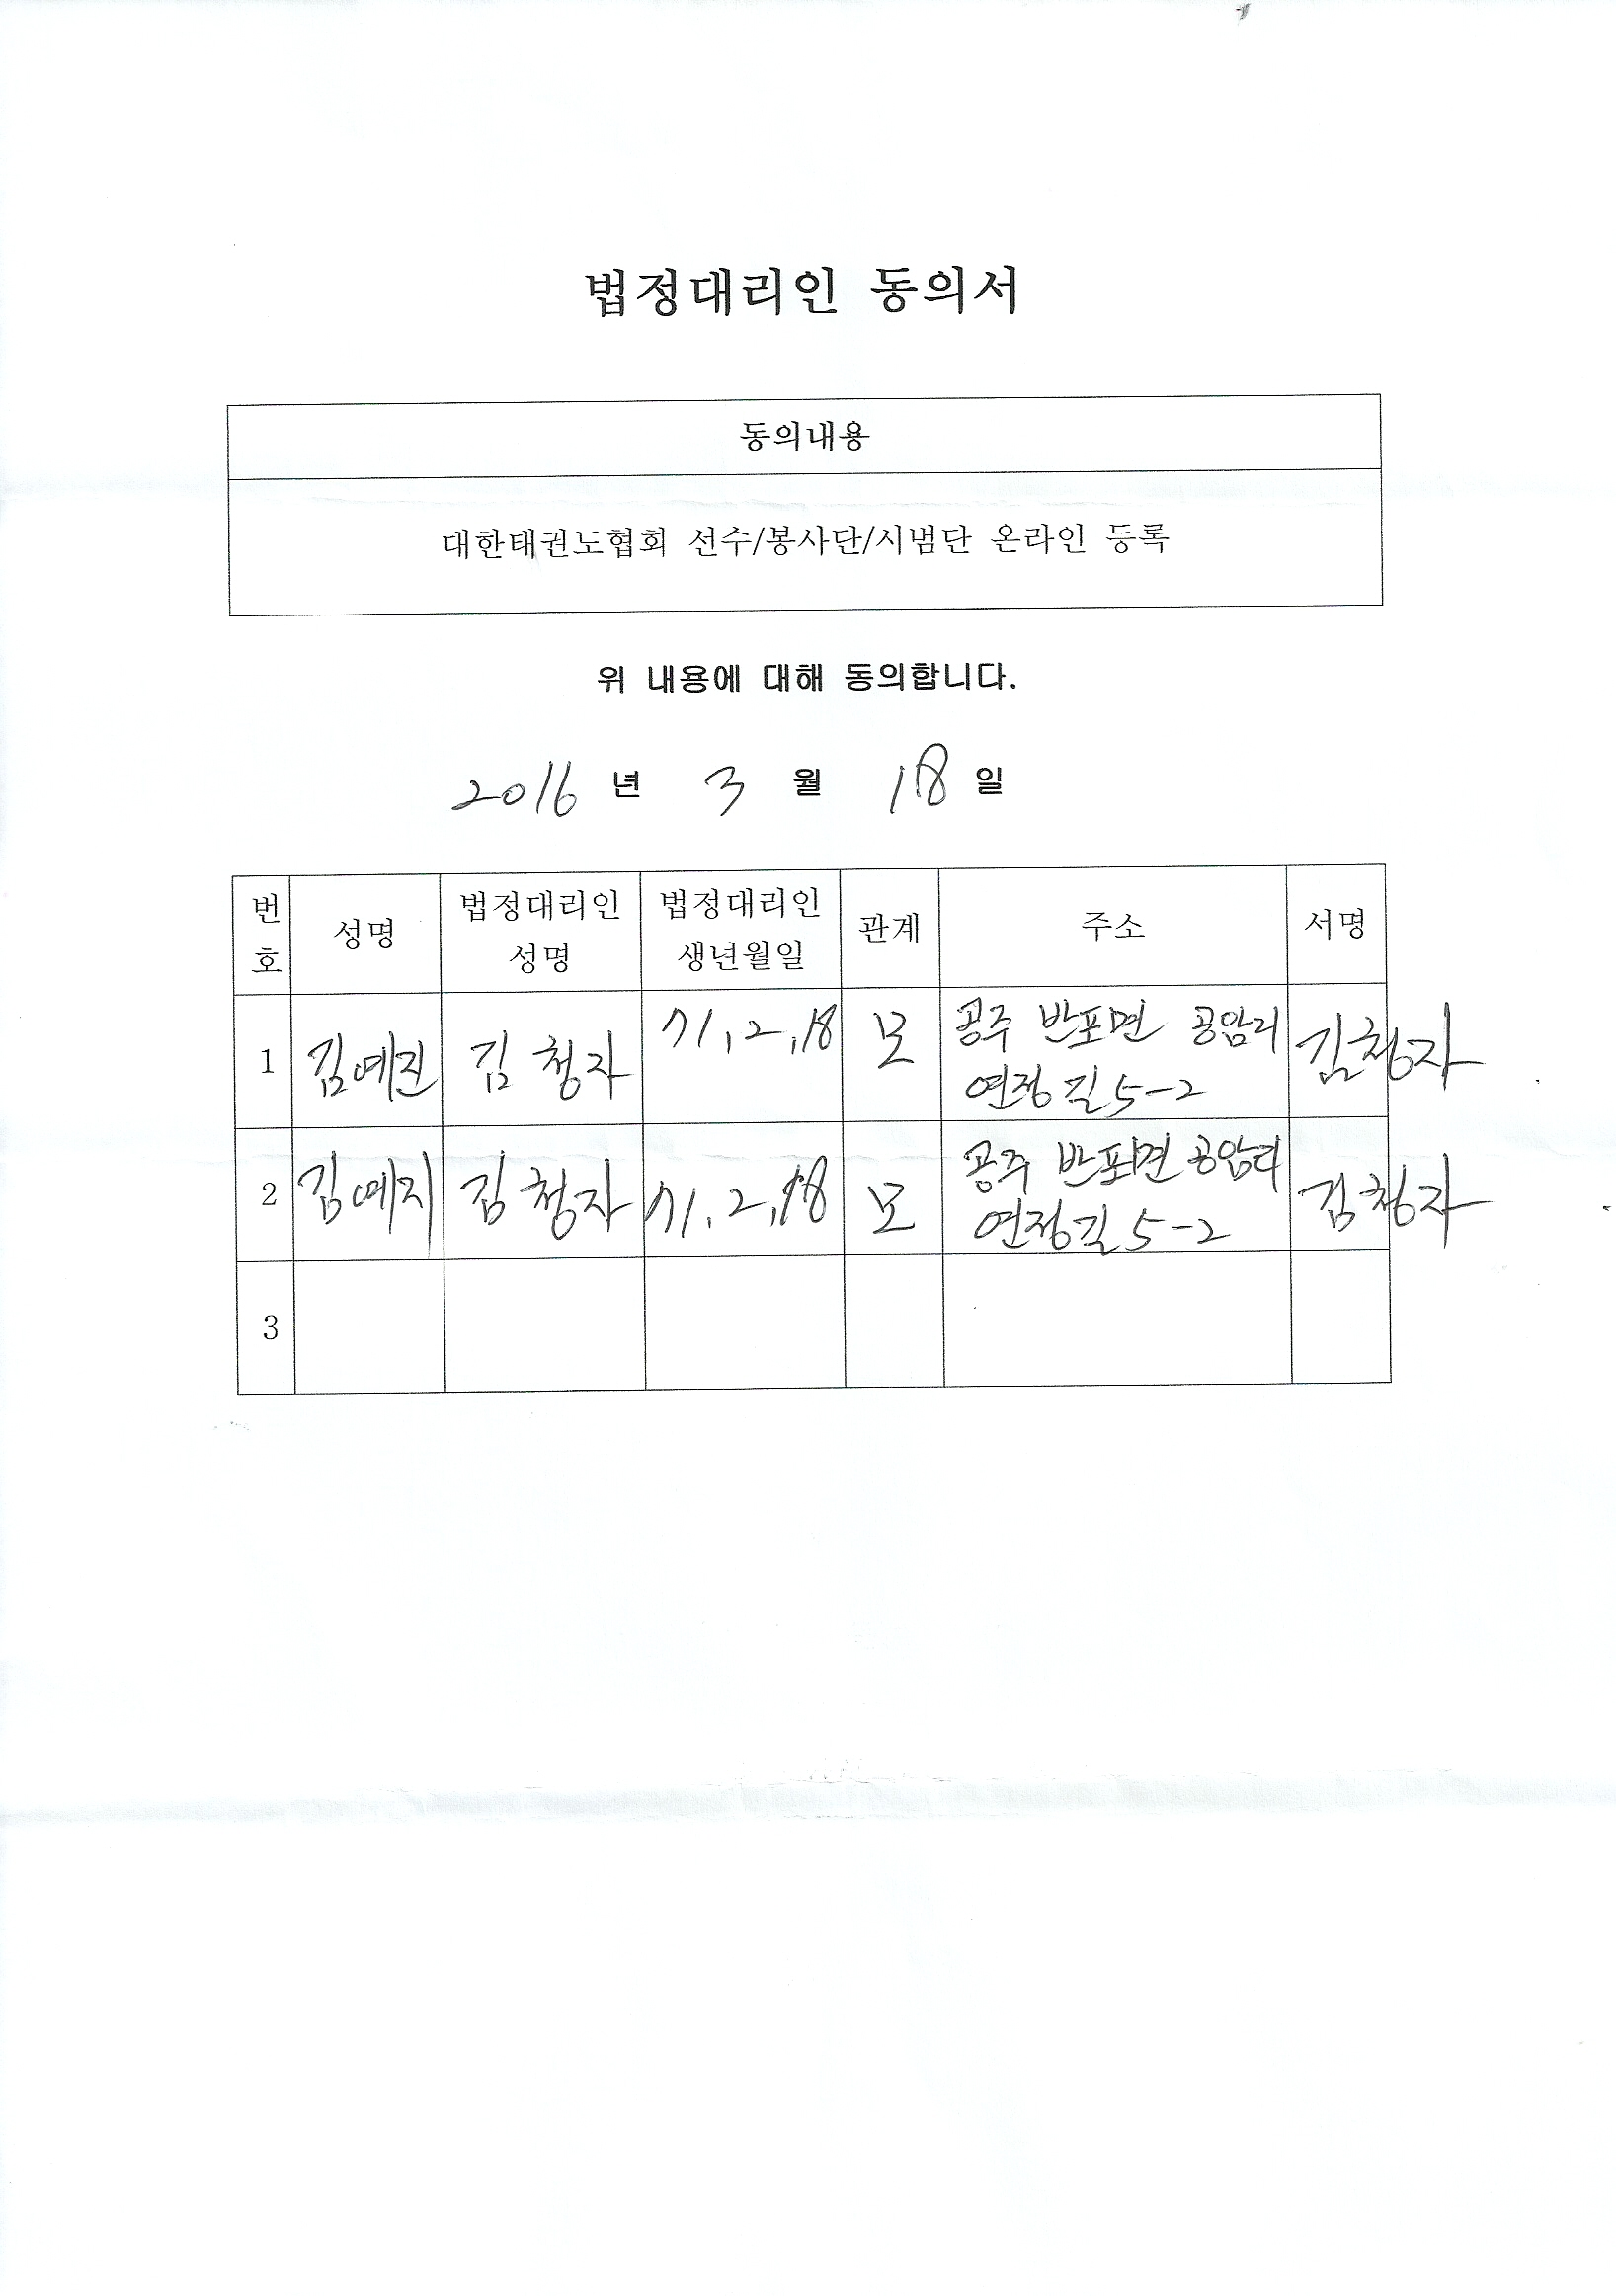 법정대리인 동의서
동의내용
대한태권도협회 선수/봉사단/시범단 온라인 등록
위 내용에 대해 동의합니다.
2016 년 3 월 18 일
번호 성명 법정대리인 성명 법정대리인 생년월일 관계 주소 서명
1 김예진 김청자 71, 2, 18 모 공주 반포면 공암리 연정길 5-2 김청자
2 김예지 김청자 71. 2, 18 모 공주 반포면 공암리 연정길 5-2 김청자
3